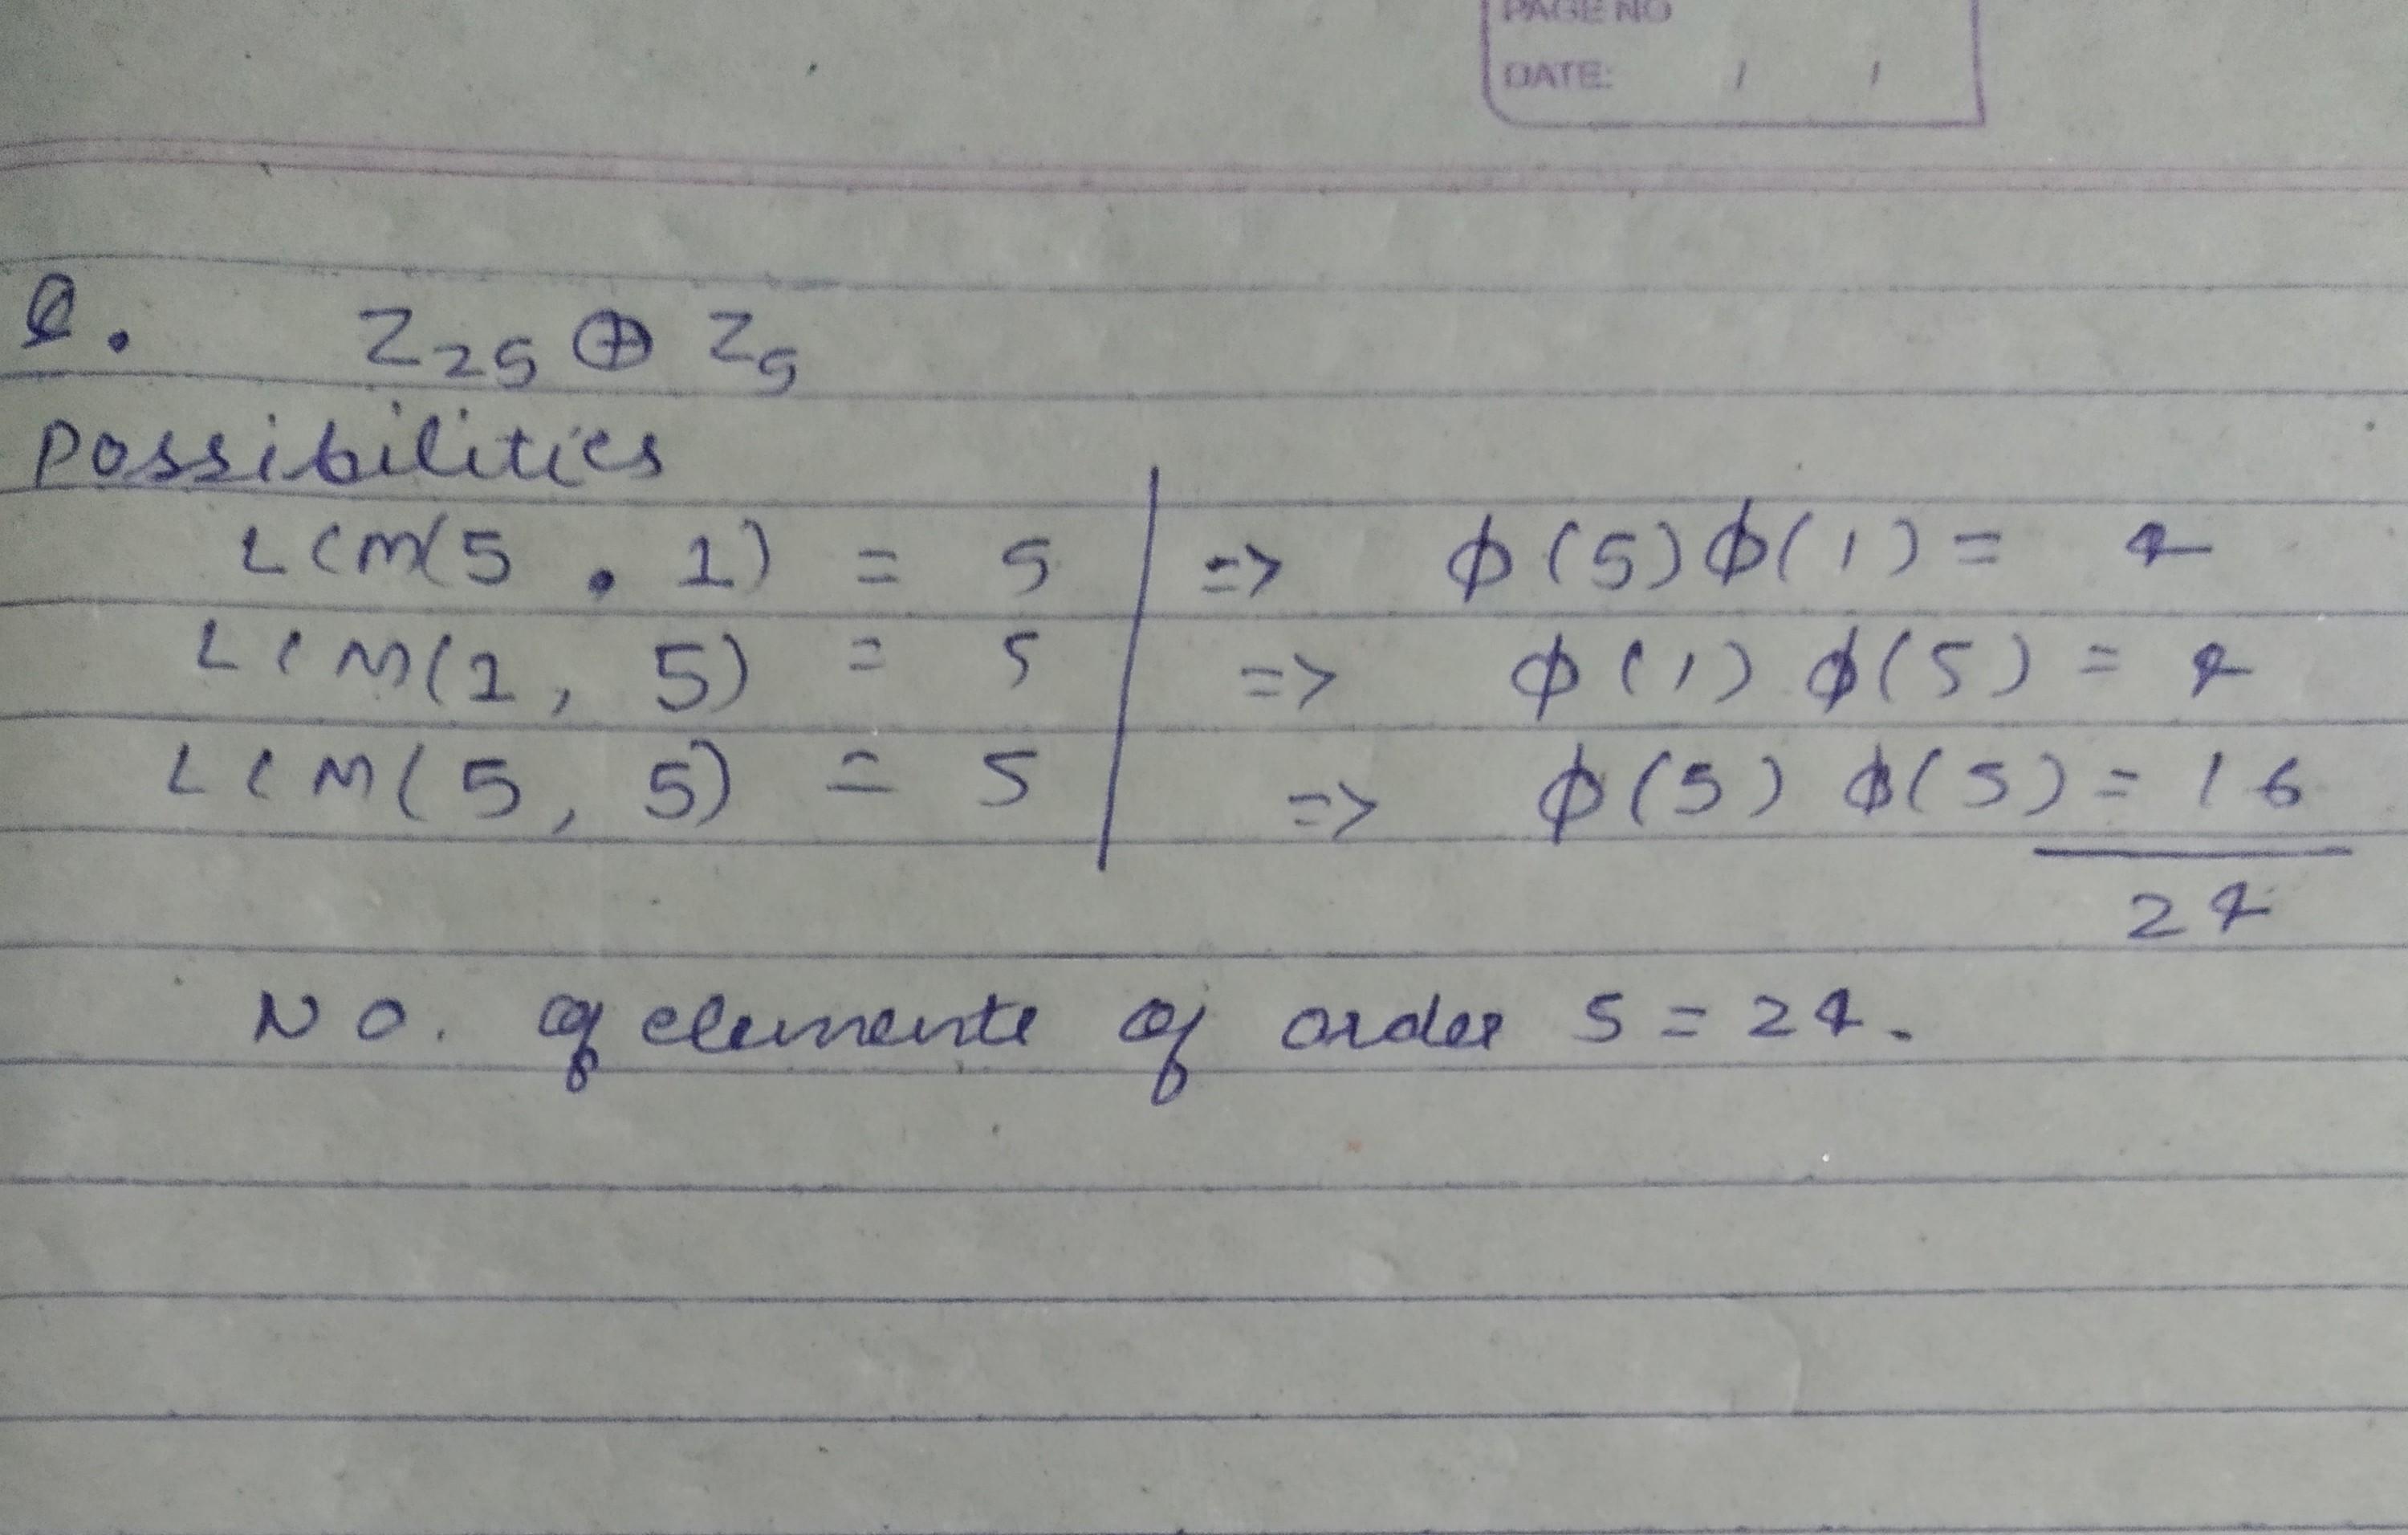 PAGE NO
DATE: / /
Q. Z₂₅ ⊕ Z₅
Possibilities
LCM(5, 1) = 5 | => ϕ(5)ϕ(1) = 4
LCM(1, 5) = 5 | => ϕ(1) ϕ(5) = 4
LCM(5, 5) = 5 | => ϕ(5) ϕ(5) = 16
24
NO. of elements of order 5 = 24.